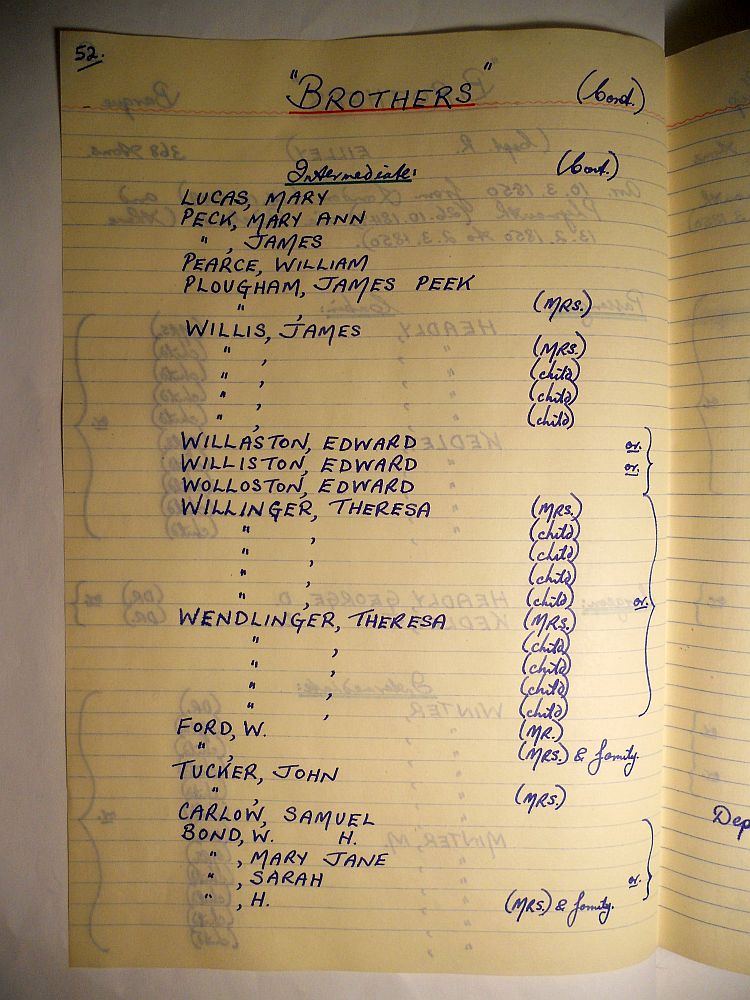 52.
"BROTHERS" (Cont.)
Intermediate: (Cont.)
LUCAS, MARY
PECK, MARY ANN
" , JAMES
PEARCE, WILLIAM
PLOUGHAM, JAMES PEEK
" , (MRS.)
WILLIS, JAMES
" , (MRS.)
" , (child)
" , (child)
" , (child)
WILLASTON, EDWARD or.
WILLISTON, EDWARD or.
WOLLOSTON, EDWARD
WILLINGER, THERESA (MRS.)
" , (child)
" , (child)
" , (child)
" , (child) or.
WENDLINGER, THERESA (MRS.)
" , (child)
" , (child)
" , (child)
" , (child)
FORD, W. (MR.)
" , (MRS.) & family.
TUCKER, JOHN
" , (MRS.)
CARLOW, SAMUEL
BOND, W. H.
" , MARY JANE
" , SARAH or.
" , H. (MRS.) & family.
Dep